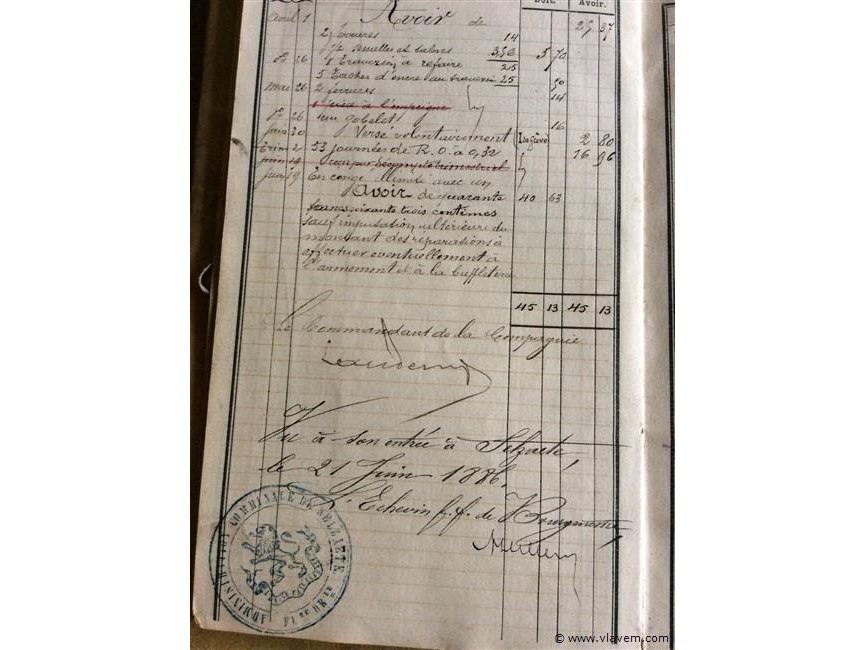 Doit. Avoir.
Avril 1 Avoir de 25 37
2 ferrures 14
1/2 semelles et talons 5 70
d° 26 1 Traversin à refaire 25
5 Taches d'encre au traversin 25
Mai 26 2 ferrures 14
1 visse à l'empeigne
d° 26 un gobelet 16
Juin 20 Versé volontairement 2 80
Trim 2 53 journées de R.O. à 0,32 16 96
Juin 19
Juin 19 En congé illimité avec un
Avoir de quarante 40 63
francs soixante trois centimes
sauf imputation ultérieure du
montant des réparations à
effectuer eventuellement à
l'armement et à la buffleterie
45 13 45 13
Le Commandant de la Compagnie
Vu à son entrée à Selzaete,
le 21 Juin 1886,
L'Echevin f.f. de Bourgmestre,
ADMINISTRATION COMMUNALE DE SELZAETE
© www.vlavem.com